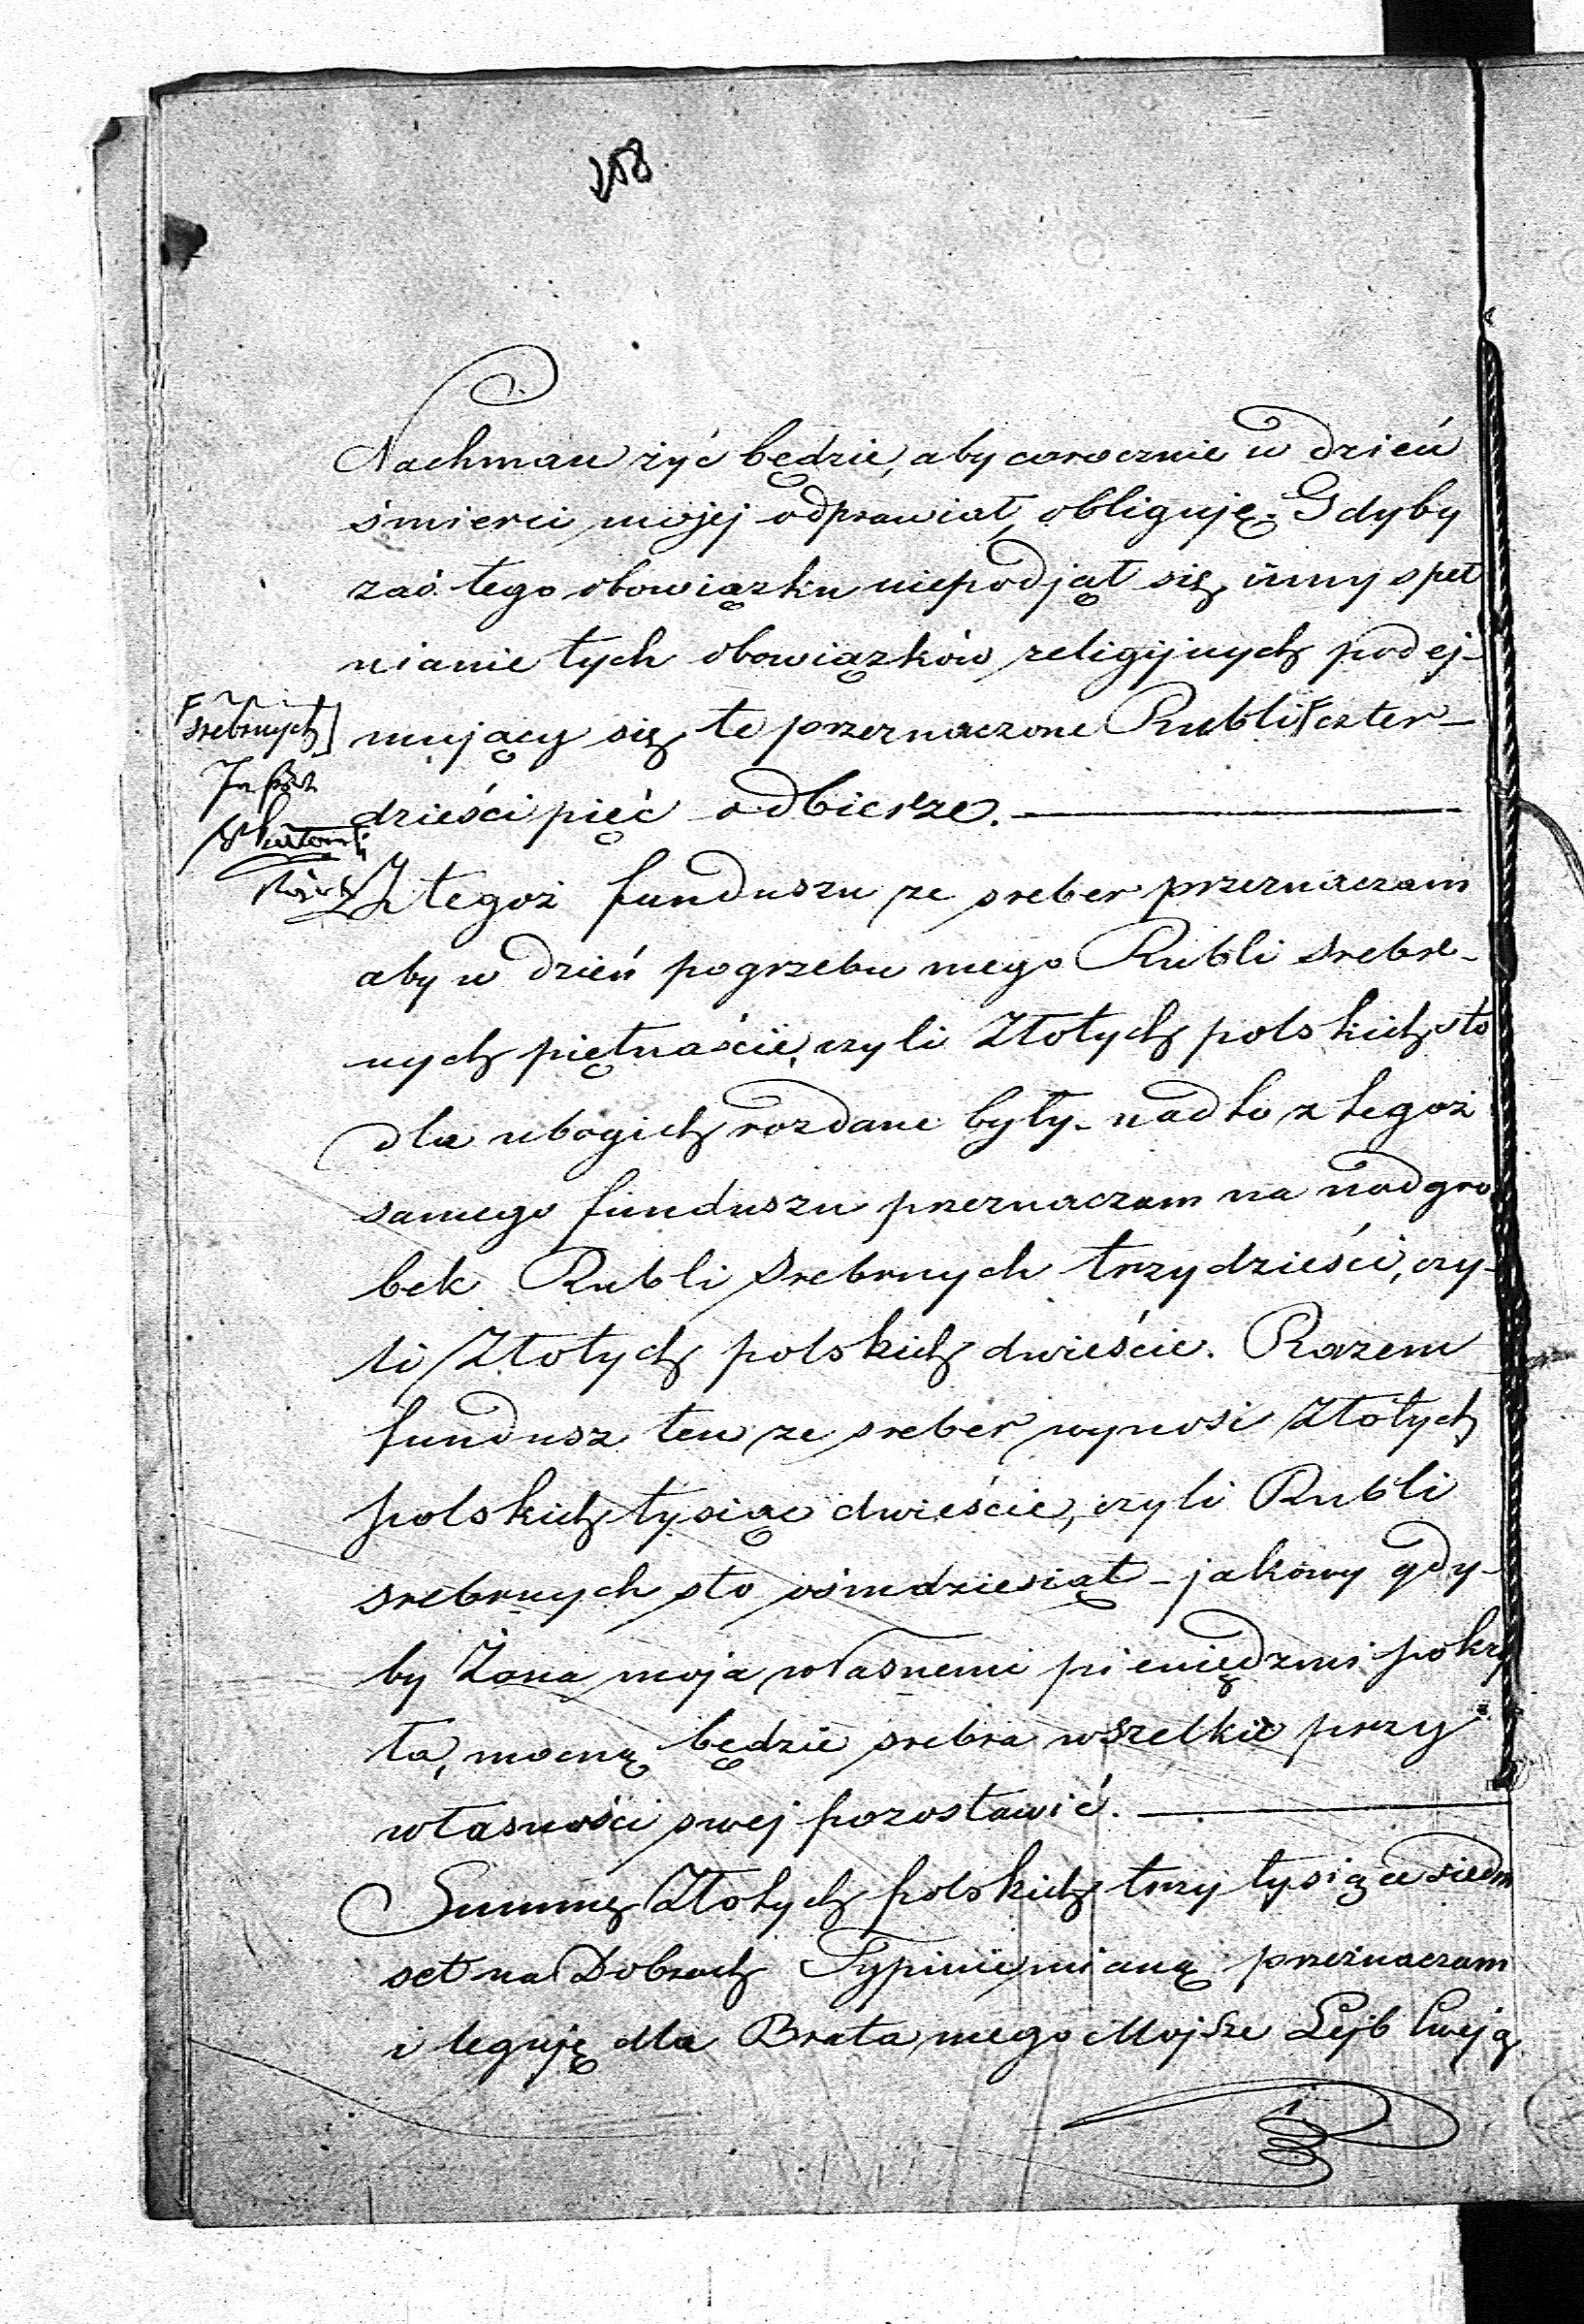 258
Nachman żyć będzie, aby corocznie w dzień
śmierci mojej odprawiał, obliguję. Gdyby
zaś tego obowiązku niepodjął się, inny speł
nianie tych obowiązków religijnych podej-
srebrnych] mujący się te przeznaczone Rubli czter-
dzieści pięć odbierze.
Z tegoż funduszu ze sreber przeznaczam
aby w dzień pogrzebu mego Rubli srebr-
nych piętnaście, czyli Złotych polskich sto
dla ubogich rozdane były - nadto z tegoż
samego funduszu przeznaczam na nadgro
bek Rubli srebrnych trzydzieści, czy-
li Złotych polskich dwieście. Razem
fundusz ten ze sreber wynosi Złotych
polskich tysiąc dwieście, czyli Rubli
srebrnych sto ośmdziesiąt - jakowy gdy-
by Żona moja własnemi pieniędzmi pokry
ła, mocną będzie srebra wszelkie przy
własności swej pozostawić.
Summę Złotych polskich trzy tysiące siedm
set na Dobrach mianą przeznaczam
i leguję dla Brata mego Mojsze Lejb